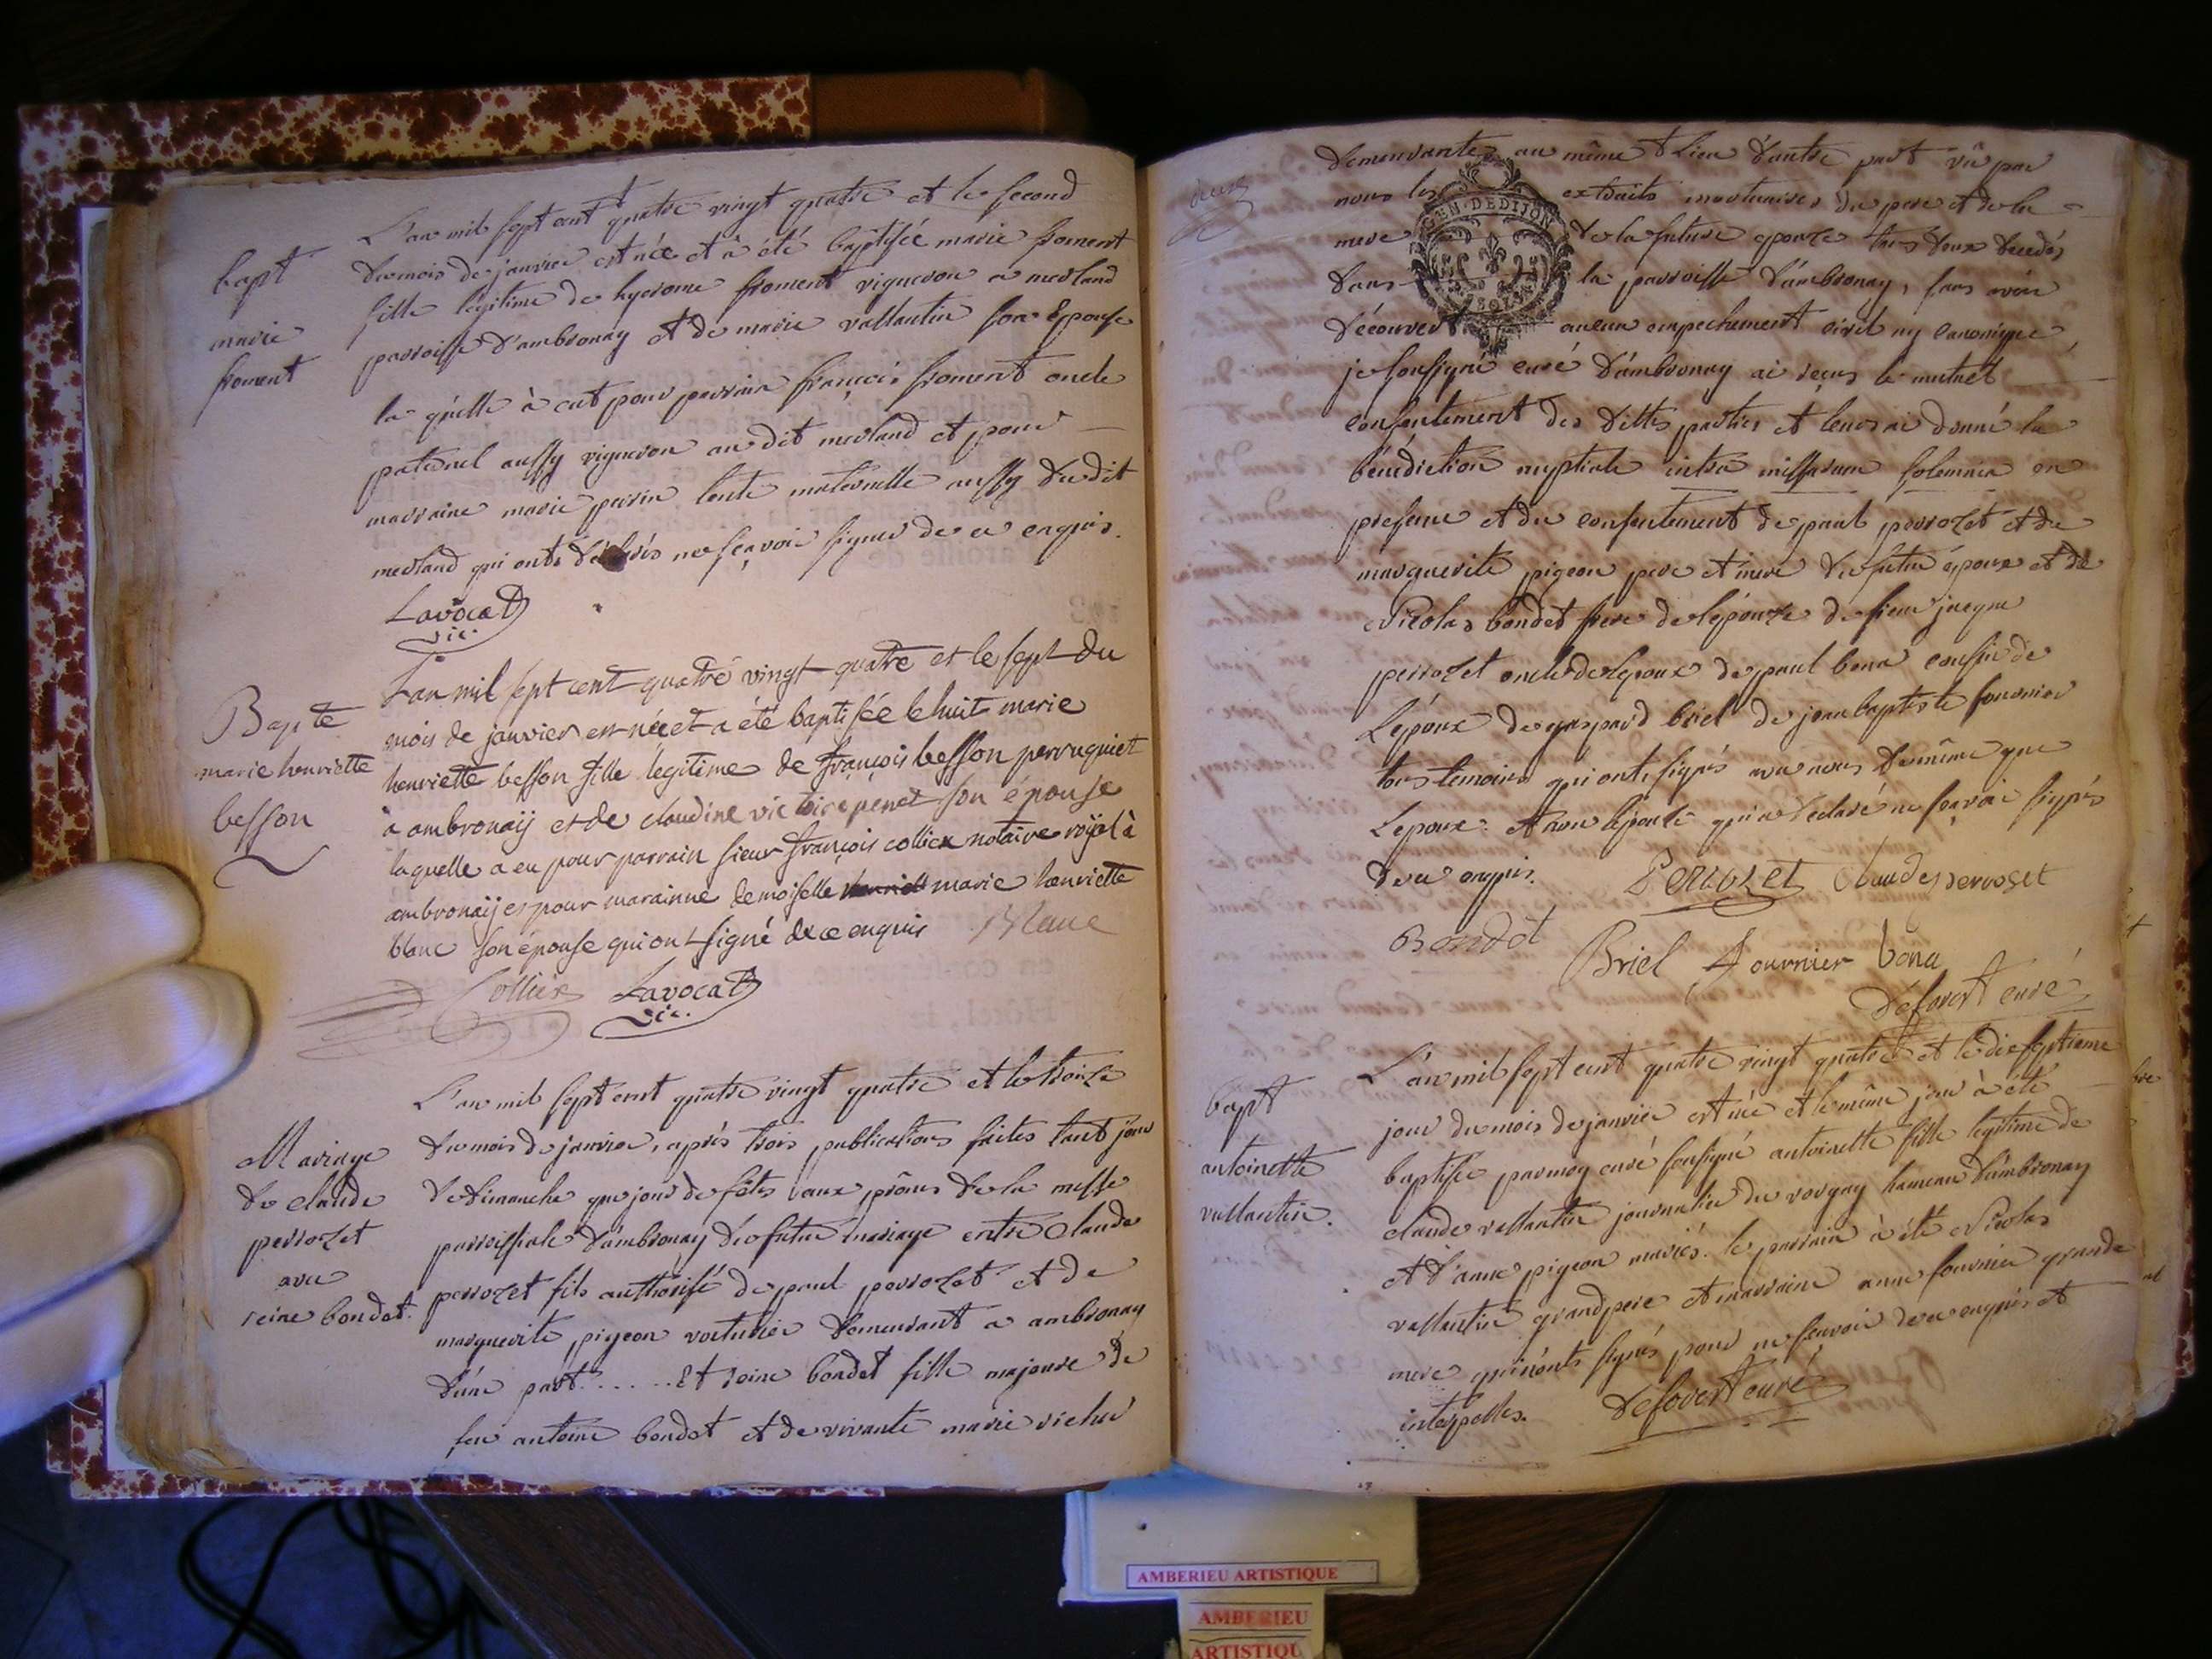 L'an mil sept cent quatre vingt quatre et le second
bapt
du mois de janvier est née et à été baptisée marie froment
marie
fille légitime de hyerome froment vigneron a merland
froment
parroisse d'ambronay et de marie vallantin son Epouse
la quelle à eut pour parrain françois froment oncle
paternel aussy vigneron au dit merland et pour
marraine marie perrin tente maternelle aussy du dit
merland qui onts déclarés ne sçavoir signer de ce enquis.
Lavocat
vic.
L'an mil sept cent quatre vingt quatre et le sept du
Bapte
mois de janvier est née et a été baptisée le huit marie
marie henriette
henriette besson fille légitime de françois besson perruquiet
besson
a ambronaÿ et de claudine victoire penet son épouse
laquelle a eu pour parrain sieur françois colliex notaire roÿal à
ambronaÿ et pour marainne demoiselle henriette marie henriette
blanc son épouse qui ont signé de ce enquis Blanc
Colliex Lavocat
vic.
L'an mil sept cent quatre vingt quatre et le treize
Mariage
du mois de janvier, après trois publications faites tant jour
de claude
de dimanche que jour de fêtes aux prônes de la messe
perrozet
parroissiale d'ambronay du futur mariage entre Claude
avec
perrozet fils authorisé de paul perrozet et de
reine bondet.
marguerite pigeon voiturier demeurant a ambronay
d'une part. . . . . . Et reine bondet fille majeure de
feu antoine bondet et de vivante marie vichu
deux
demeurante au même Lieu d'autre part vû par
nous les extraits mortuaires du pere et de la
GEN. DE DIJON
mere de la future epouze tous deux decedés
dans la parroisse d'ambronay, sans avoir
découvert aucun empechement civil ny canonique,
je soussigné curé d'ambronay ai reçus le mutuel
consentement des dittes parties et leurs ai donné la
bénédiction nuptiale intra missarum solemnia en
presence et du consentement de paul perrozet et de
marguerite pigeon pere et mere du futur époux et de
Nicolas bondet frere de l'épouze de sieur jacque
perrozet oncle de lepoux de paul bona cousin de
Lépoux de gaspard briel de jean baptiste fournier
tous temoins qui onts signés avec nous de même que
Lepoux et non lépouze qui a declaré ne sçavoir signer
de ce enquis. Perrozet Claude perroset
Bondet Briel Fournier bona
Deforest curé
L'an mil sept cent quatre vingt quatre et le dix septieme
bapt
jour du mois de janvier est née et le même jour à été
antoinette
baptisée par moy curé soussigné antoinette fille legitime de
vallantin.
claude vallantin journalier du vorgay hameau d'ambronay
et d'anne pigeon mariés. le parrain à été Nicolas
vallantin grand pere et marraine anne fournier grande
mere qui n'onts signés pour ne sçavoir de ce enquis et
interpellés. Deforest curé
AMBERIEU ARTISTIQUE
AMBERIEU
ARTISTIQU